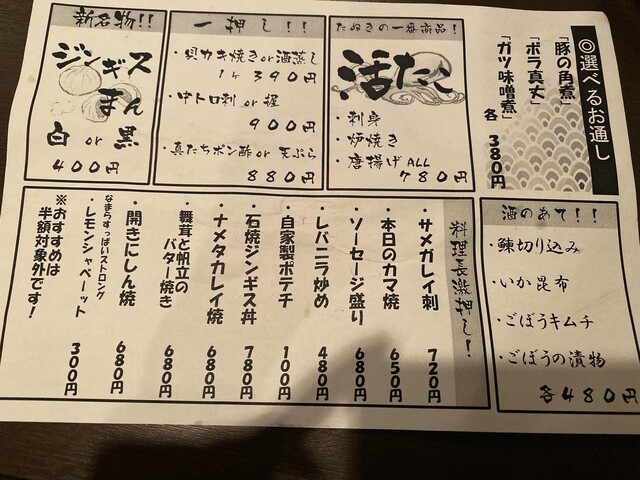 ◎選べるお通し
「豚の角煮」
「ボラ真丈」
「ガツ味噌煮」
各 380円
たぬきの一番商品！
活たこ
・刺身
・炉焼き
・唐揚げ ALL
780円
一押し！！
・貝カキ焼き or 酒蒸し
1ヶ 390円
・中トロ刺 or 握
900円
・真たちポン酢 or 天ぷら
880円
新名物！！
ジンギス
まん
白 or 黒
400円
酒のあて！！
・鰊切り込み
・いか昆布
・ごぼうキムチ
・ごぼうの漬物
各480円
料理長激押し！
・サメガレイ刺 720円
・本日のカマ焼 650円
・ソーセージ盛り 410円
・レバニラ炒め 480円
・自家製ポテチ 100円
・石焼ジンギス丼 780円
・ナメタカレイ焼 680円
・舞茸と帆立の
バター焼き 680円
・開きにしん焼 680円
なまらすっぱいストロング
・レモンシャベーット 300円
※おすすめは
半額対象外です！